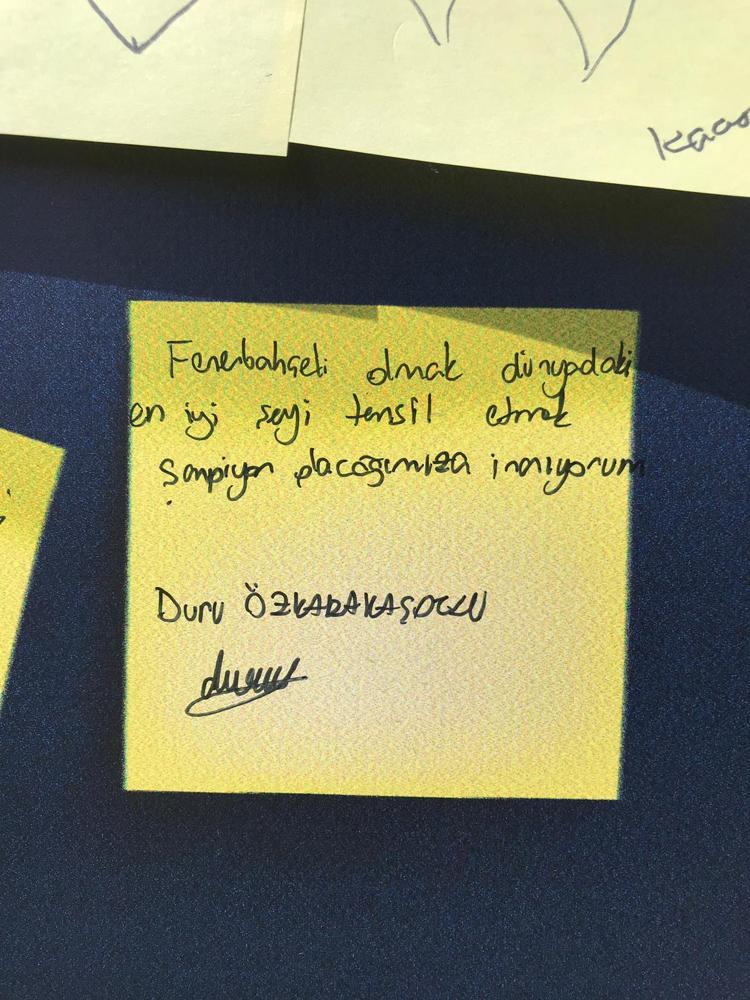 Fenerbahçeli olmak dünyadaki
en iyi şeyi temsil etmek
Şampiyon olacağımıza inanıyorum
Duru ÖZKARAKAŞOĞLU
duru